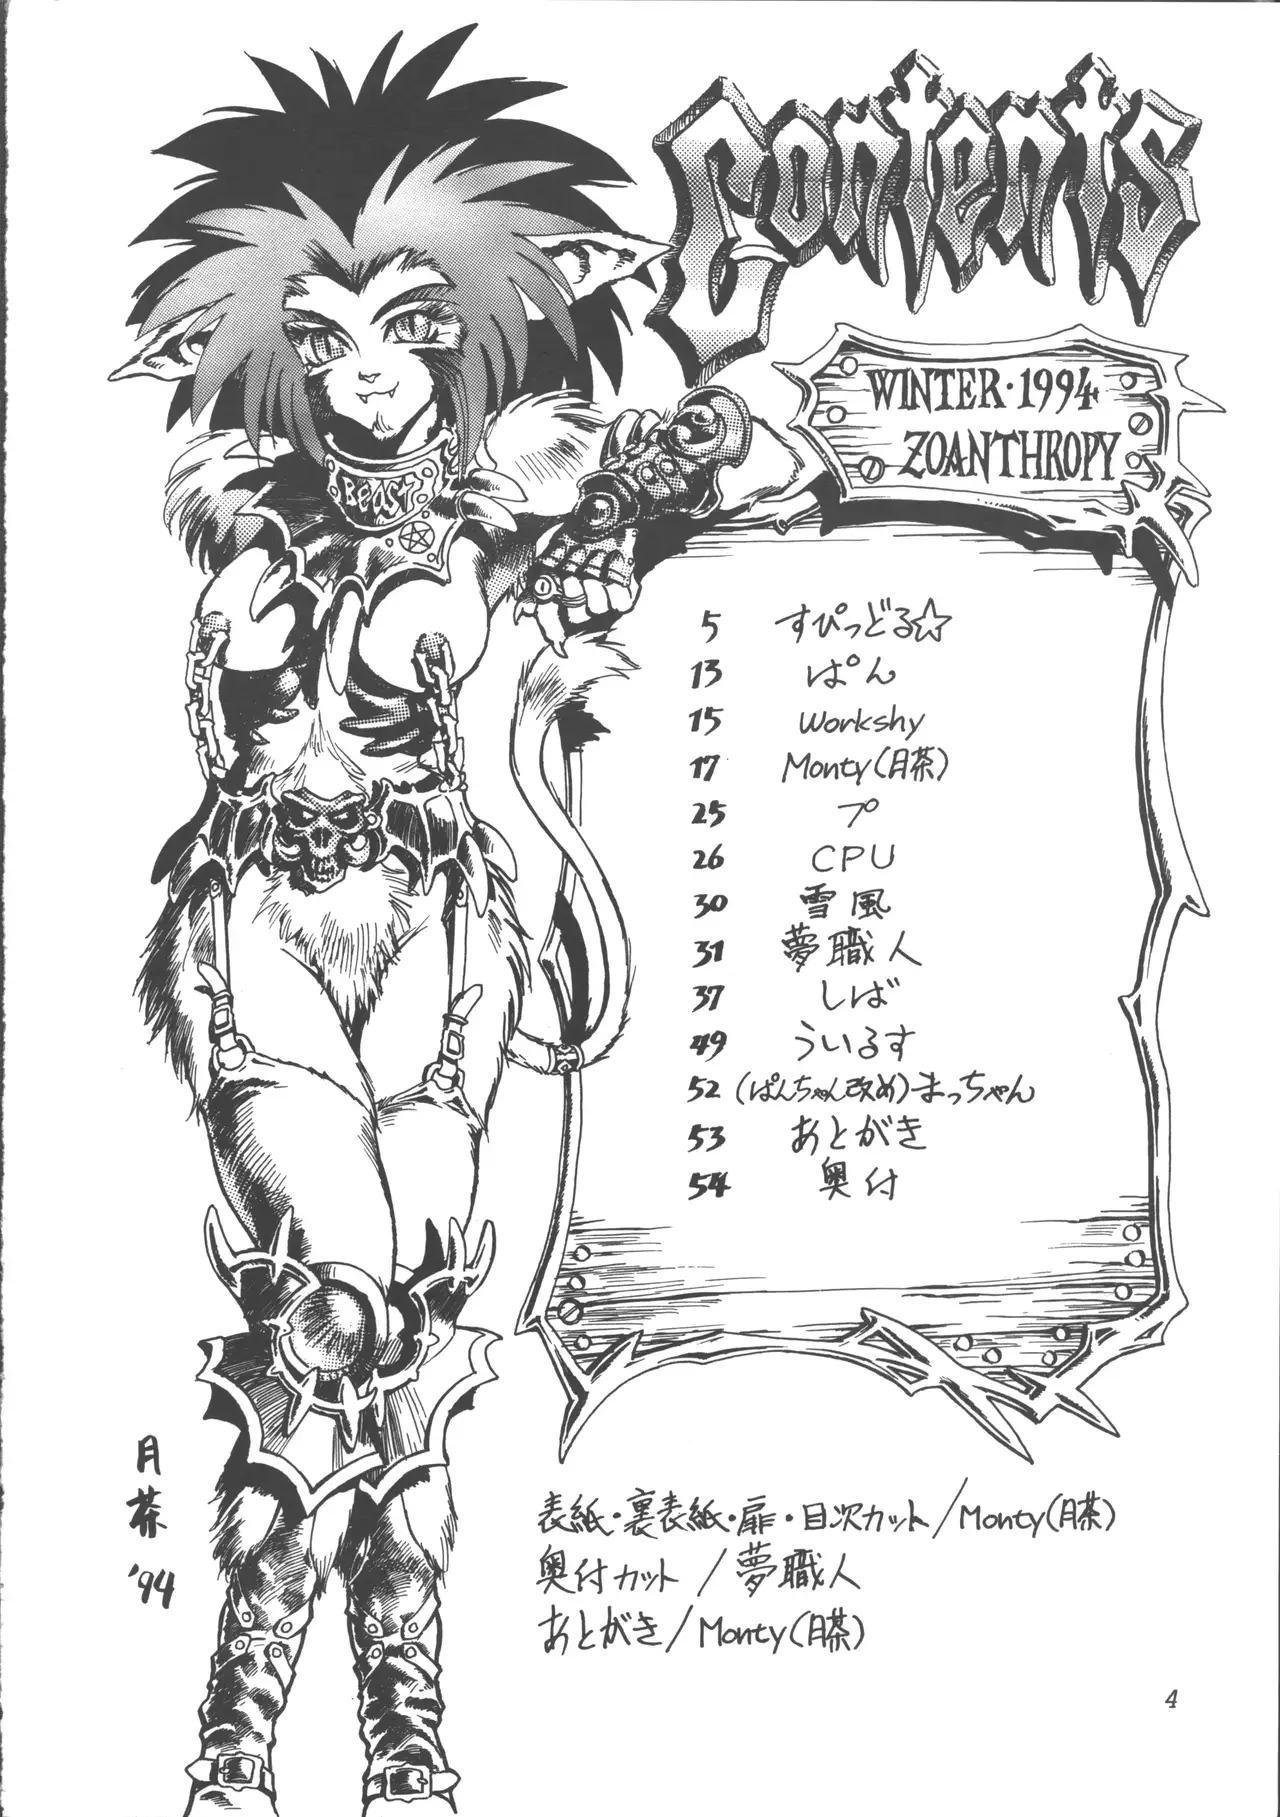 Contents
WINTER・1994
ZOANTHROPY
BEAST
5 すぴっどる☆
13 ぱん
15 Workshy
17 Monty(月茶)
25 プ
26 CPU
30 雪風
31 夢職人
37 しば
49 ういるす
52 (ぱんちゃん改め)まっちゃん
53 あとがき
54 奥付
月茶
'94
表紙・裏表紙・扉・目次カット/Monty(月茶)
奥付カット/夢職人
あとがき/Monty(月茶)
4